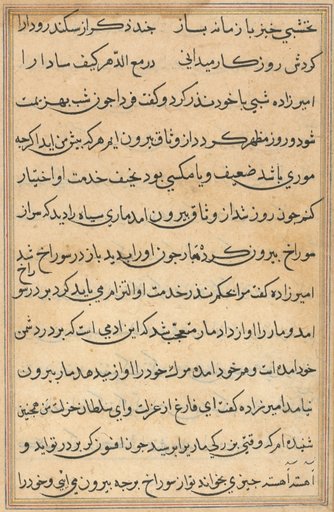 نخشبی خیز با زمانه بساز چند ذکر از سکندر و دارا
کردش روزکار میدانی در مع الدهر کیف ما دارا
امیرزاده شبی با خود نذر کرد و کفت فردا چون شب بهزیمت
شود و روز مظهر کردد از وثاق بیرون ایم هر که پیش من اید اکرچه
موری باشد ضعیف و یا مکسی بود نحیف خدمت او اختیار
کنم چون روز شد از وثاق بیرون امد ماری سیاه را دید که سر از
سوراخ بیرون کرده مار چون او را بدید باز در سوراخ شد
امیرزاده کفت مرا بحکم نذر خدمت او التزام می باید کرد بر در سوراخ
امد و مار را اواز داد مار متعجب شد که این ادمی است که بر در دشمن
خود امده است و هم خود امده مرک خود را اواز میدهد مار بیرون
نیامد امیرزاده کفت ای فارغ از عزلت و ای سلطان خزلت من همچنین
شنیده ام که وقتی بزرکی مار برابر رسید چون افسون کر بر در تو اید و
آهسته آهسته چیزی بخواند تو از سوراخ بر چه بیرون می ایی و خود را